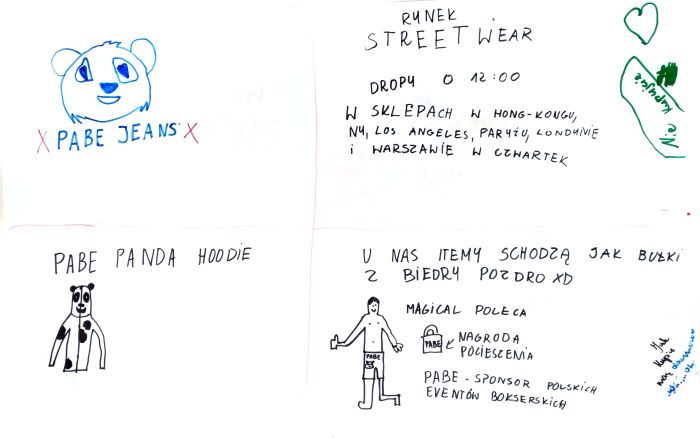 X PABE JEANS X
RYNEK
STREETWEAR
DROPY O 12:00
W SKLEPACH W HONG-KONGU,
NY, LOS ANGELES, PARYŻU, LONDYNIE
I WARSZAWIE W CZWARTEK
Nie kupujcie
PABE PANDA HOODIE
U NAS ITEMY SCHODZĄ JAK BUŁKI
Z BIEDRY POZDRO XD
MAGICAL POLECA
PABE
NAGRODA
POCIESZENIA
PABE
PABE - SPONSOR POLSKICH
EVENTÓW BOKSERSKICH